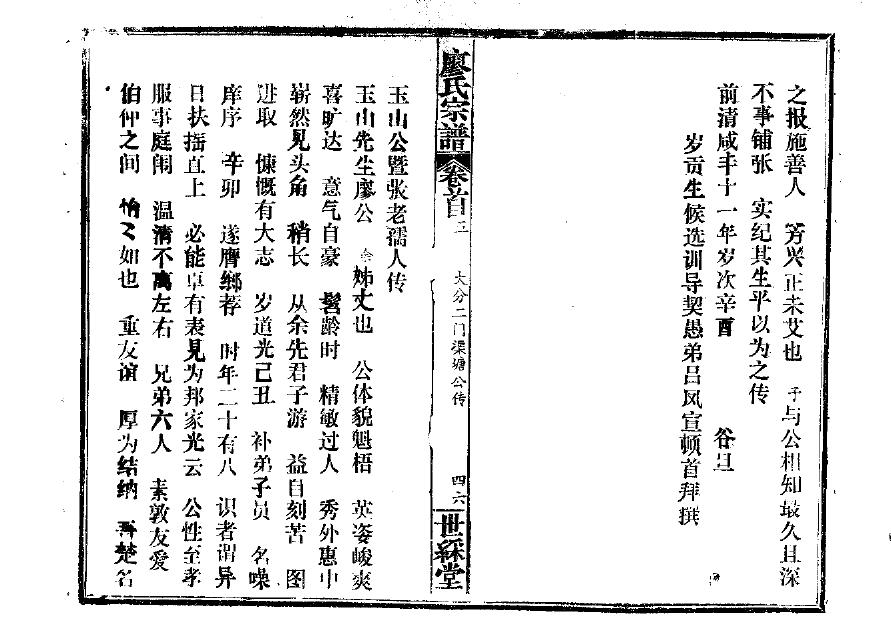 之报施善人　芳兴正未艾也　予与公相知最久且深
不事铺张　实纪其生平以为之传
前清咸丰十一年岁次辛酉　谷旦
岁贡生候选训导契愚弟吕凤宣顿首拜撰
廖氏宗譜　卷首三　大分二门渠塘公传　四六　世綵堂
玉山公暨张老孺人传
玉山先生廖公　余姊丈也　公体貌魁梧　英姿峻爽
喜旷达　意气自豪　髫龄时　精敏过人　秀外惠中
崭然见头角　稍长　从余先君子游　益自刻苦　图
进取　慷慨有大志　岁道光己丑　补弟子员　名噪
庠序　辛卯　遂膺鄉荐　时年二十有八　识者谓异
日扶摇直上　必能卓有表見为邦家光云　公性至孝
服事庭闱　温清不离左右　兄弟六人　素敦友爱
伯仲之间　怡々如也　重友谊　厚为结纳　吾楚名